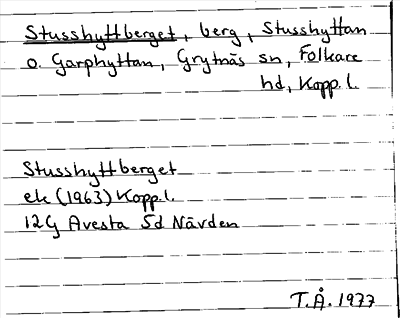 Stusshyttberget, berg, Stusshyttan
o. Garphyttan, Grytnäs sn, Folkare
hd, Kopp. l.
Stusshyttberget
ek (1963) Kopp. l.
12G Avesta 5d Nävden
T.Å. 1977